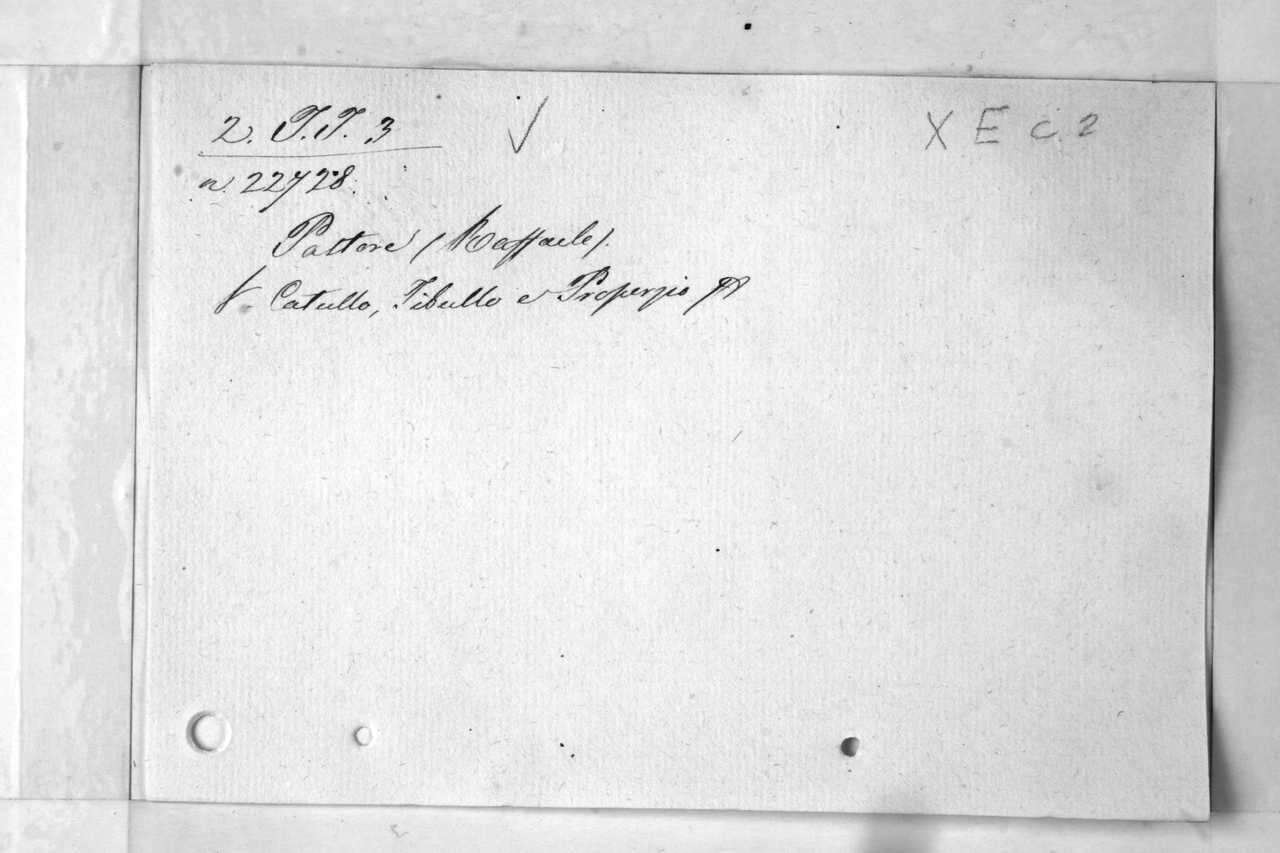 2. T.T. 3 √ X E c. 2
n. 22728.
Pastore (Raffaele).
V. Catullo, Tibullo e Properzio